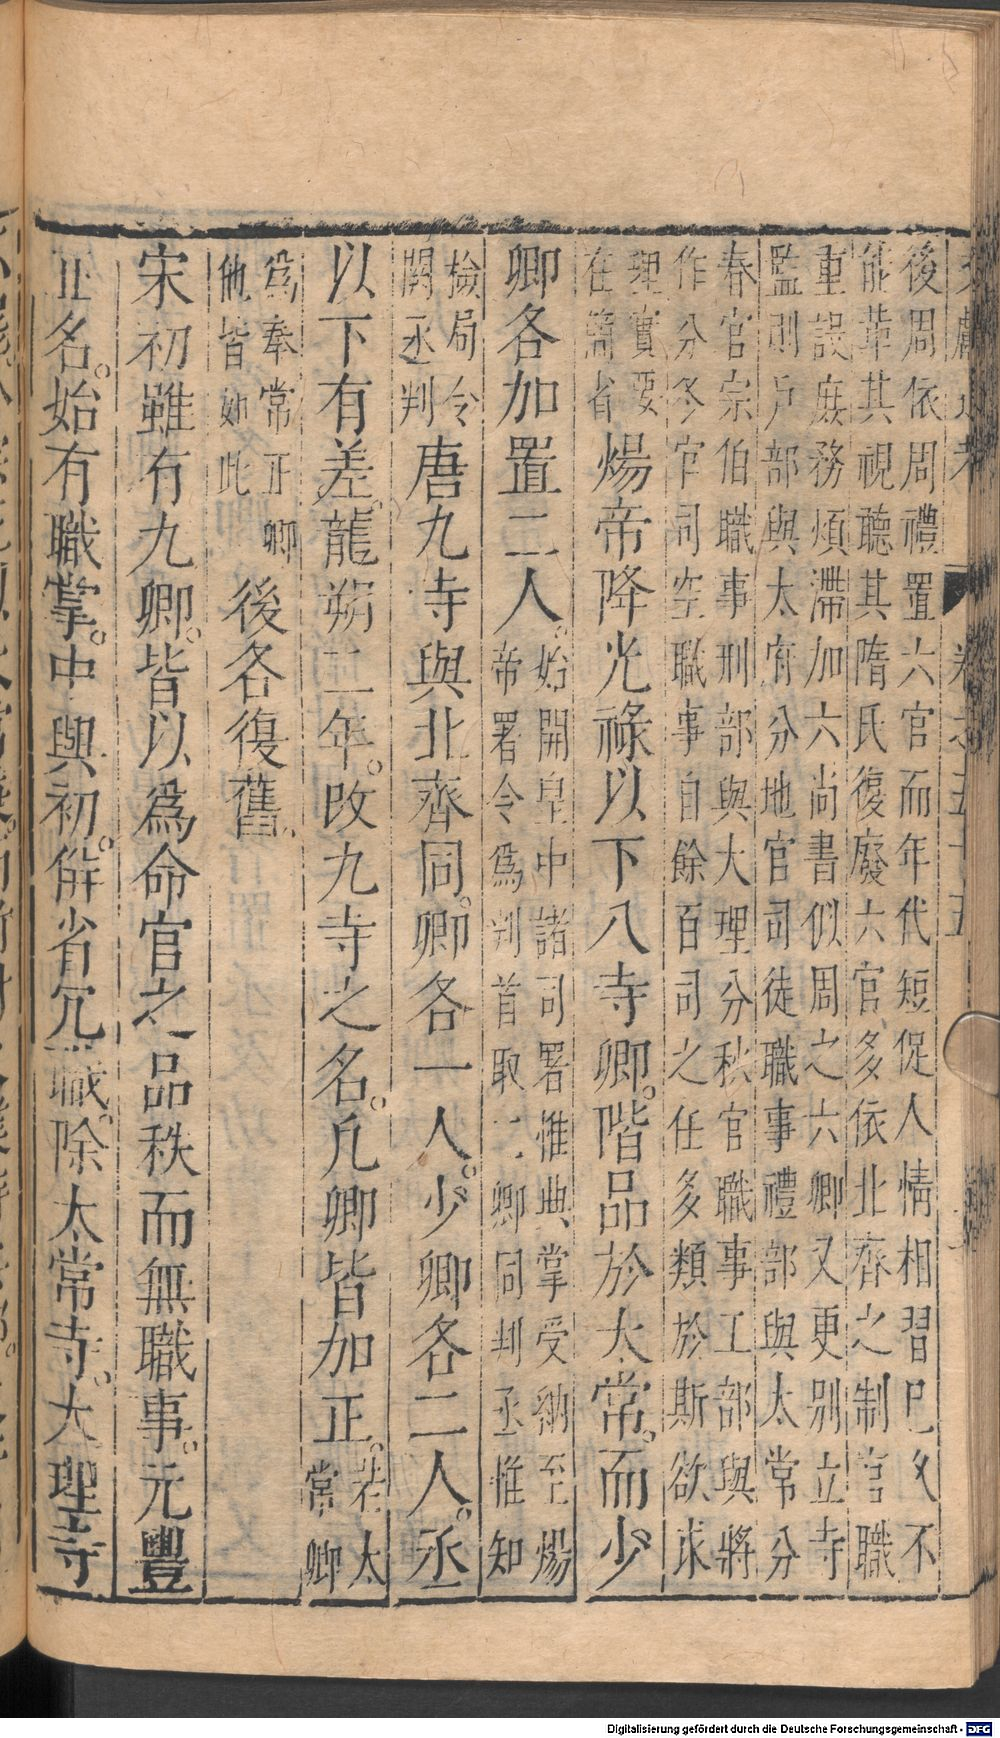 文獻通考 卷之五十五
後周依周禮置六官而年代短促人情相習已久不
能革其視聽其隋氏復廢六官多依北齊之制官職
重設庶務煩滯加六尚書似周之六卿又更別立寺
監則戶部與太府分地官司徒職事禮部與太常分
春官宗伯職事刑部與大理分秋官職事工部與將
作分冬官司空職事自餘百司之任多類於斯欲求
理實要
在簡省
煬帝降光祿以下八寺卿。階品於太常。而少
卿各加置二人。
始開皇中諸司署惟典掌受納至煬
帝署令爲判首取二卿同判丞惟知
檢局令
關丞判
唐九寺與北齊同。卿各一人。少卿各二人。丞
以下有差。龍朔二年。改九寺之名。凡卿皆加正。
若太
常卿
爲奉常正卿
他皆如此
後各復舊。
宋初雖有九卿。皆以爲命官之品秩而無職事。元豐
正名。始有職掌。中興初。併省冗職。除太常寺。大理寺
Digitalisierung gefördert durch die Deutsche Forschungsgemeinschaft - DFG